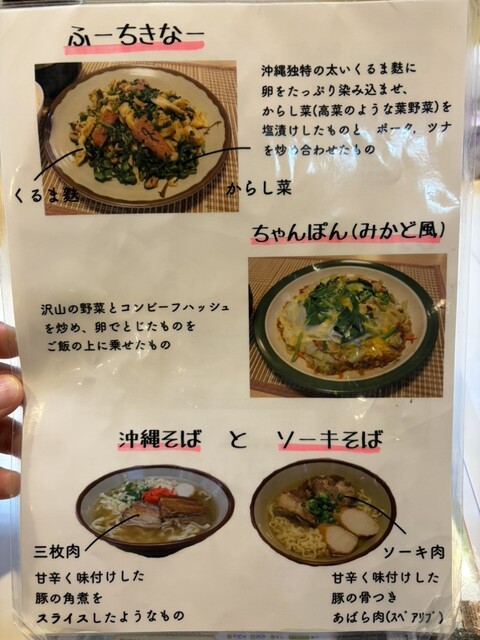 ふーちきなー
沖縄独特の太いくるま麩に
卵をたっぷり染み込ませ、
からし菜(高菜のような葉野菜)を
塩漬けしたものと、ポーク、ツナ
を炒め合わせたもの
くるま麩
からし菜
ちゃんぽん(みかど風)
沢山の野菜とコンビーフハッシュ
を炒め、卵でとじたものを
ご飯の上に乗せたもの
沖縄そば と ソーキそば
三枚肉
甘辛く味付けした
豚の角煮を
スライスしたようなもの
ソーキ肉
甘辛く味付けした
豚の骨つき
あばら肉(スペアリブ)